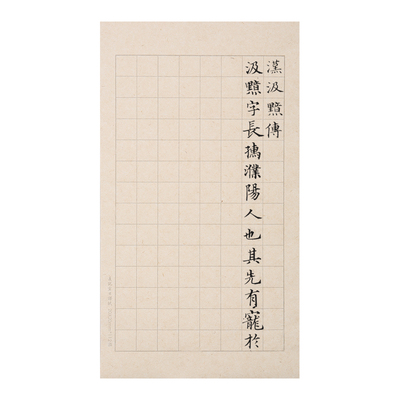 漢汲黯傳
汲黯字長孺濮陽人也其先有寵於